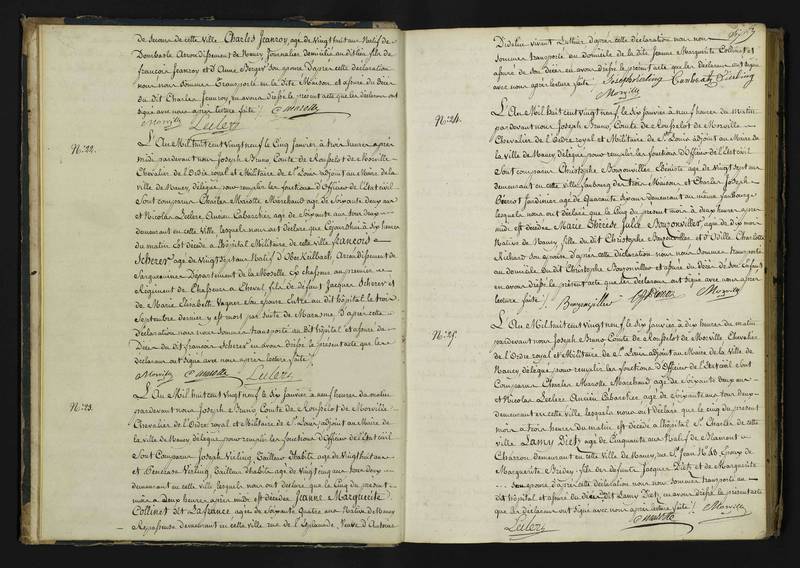 de secours de cette ville Charles Jeanroy, age de vingt huit ans Natif de
Dombasle Arrondissement de Nancy, Journalier domicilié audit lieu fils de
francois Jeanroy et d'Anne Berger son epouse D'après cette déclaration
nous nous sommes Transporté en la dite Maison et assuré du décès
du dit Charles Jeanroy, en avons dressé le présent acte que les déclarans ont
signé avec nous après lecture faite /.
Morville Marotte
Leclerc
N.° 22.
L'An Mil huit cent vingt neuf le Cinq janvier à trois heures après
midi pardevant nous Joseph Bruno, Comte de Rousselot de Morville
Chevalier de l'Ordre royal et Militaire de S.t Louis adjoint au Maire de la
ville de Nancy délégué pour remplir les fonctions d'Officier de l'Etat civil
Sont comparus Charles Marotte Marchand age de Soixante deux ans
et Nicolas Leclerc Ancien Cabaretier age de Soixante ans tous deux
demeurant en cette Ville, lesquels nous ont déclaré que Cejourd'hui à Six heures
du matin est décédé à l'hôpital Militaire de cette ville francois
Scherer age de vingt sept ans Natif d'Obergailbach, Arrondissement de
Sarguemine Département de la Moselle
Régiment de Chasseurs à Cheval, fils de défunt Jacques Scherer et
de Marie Elisabeth Vagner Son epouse Entré au dit hôpital le trois
Septembre dernier y est mort par Suite de Marasme, D'après cette
déclaration nous nous sommes transporté au dit hôpital et assuré du
Décès du dit francois Scherer en avons dressé le présent acte que les
déclarans ont signé avec nous après lecture faite /.
Morville Marotte Leclerc
N.° 23.
L'An Mil huit cent vingt neuf le Six janvier à neuf heures du matin
pardevant nous Joseph Bruno Comte de Rousselot de Morville
Chevalier de l'Ordre royal et Militaire de S.t Louis adjoint au Maire de
la ville de Nancy délégué pour remplir les fonctions d'Officier de l'Etat civil
Sont Comparus Joseph Tailleur d'habits age de vingt huit ans
et Tailleur d'habits age de vingt cinq ans tous deux
demeurant en cette ville, lesquels nous ont déclaré que le Cinq du present
mois à deux heures après midi est décédée Jeanne Marguerite
Collinet dit Lafrance agée de Soixante Quatre ans Native de Nancy
Repasseuse demeurant en cette ville rue de l'Esplanade, Veuve d'Antoine
Didelot vivant Luthier d'après cette déclaration nous nous
sommes transporté au domicile de la dite Jeanne Marguerite Collinet et
assuré de son décès en avons dressé le présent acte que les déclarans ont signé
avec nous après lecture faite /.
Morville
N.° 24.
L'An Mil huit cent vingt neuf le six janvier à neuf heures du matin
pardevant nous Joseph Bruno, Comte de Rousselot de Morville
Chevalier de l'Ordre royal et Militaire de S.t Louis adjoint au Maire de
la ville de Nancy délégué pour remplir les fonctions d'Officier de l'Etat civil
Sont comparus Christophe Bouzonviller, Ebéniste age de vingt sept ans
demeurant en cette ville faubourg des trois Maisons et Charles Joseph
Jardinier age de Quarante Six ans demeurant au même faubourg
lesquels nous ont déclaré que le Cinq du présent mois à deux heures après
midi est décédée Marie Thérèse Julie Bouzonviller, agée de dix mois
Native de Nancy, fille du dit Christophe Bouzonviller et Charlotte
Richard son epouse d'après cette déclaration nous nous sommes transporté
au domicile du dit Christophe Bouzonviller et assuré du décès de son Enfant
en avons dressé le présent acte que les déclarans ont signé avec nous après
lecture faite /.
Bouzonviller Morville
N.° 25.
L'An Mil huit cent vingt neuf le Six janvier à dix heures du matin
pardevant nous Joseph Bruno Comte de Rousselot de Morville, Chevalier
de l'Ordre royal et Militaire de S.t Louis adjoint au Maire de la Ville de
Nancy, délégué pour remplir les fonctions d'Officier de l'Etat civil Sont
Comparus Charles Marotte Marchand age de Soixante deux ans
et Nicolas Leclerc Ancien Cabaretier age de Soixante ans tous deux
demeurant en cette ville, lesquels nous ont déclaré que le cinq du présent
mois à trois heures du matin est décédé à l'hôpital S.t Charles de cette
ville Lamy Diety age de Cinquante ans Natif de Blamont
Charron demeurant en cette Ville de Nancy, rue S.t Jean N.° 48 Epoux de
Marguerite fils des défunts Jacques Diety et de Marguerite
.... Son epouse d'après cette déclaration nous nous sommes transporté au
dit hôpital et assuré du décès dit Lamy Diety en avons dressé le présent acte
que les déclarans ont signé avec nous après lecture faite /.
Leclerc Marotte Morville